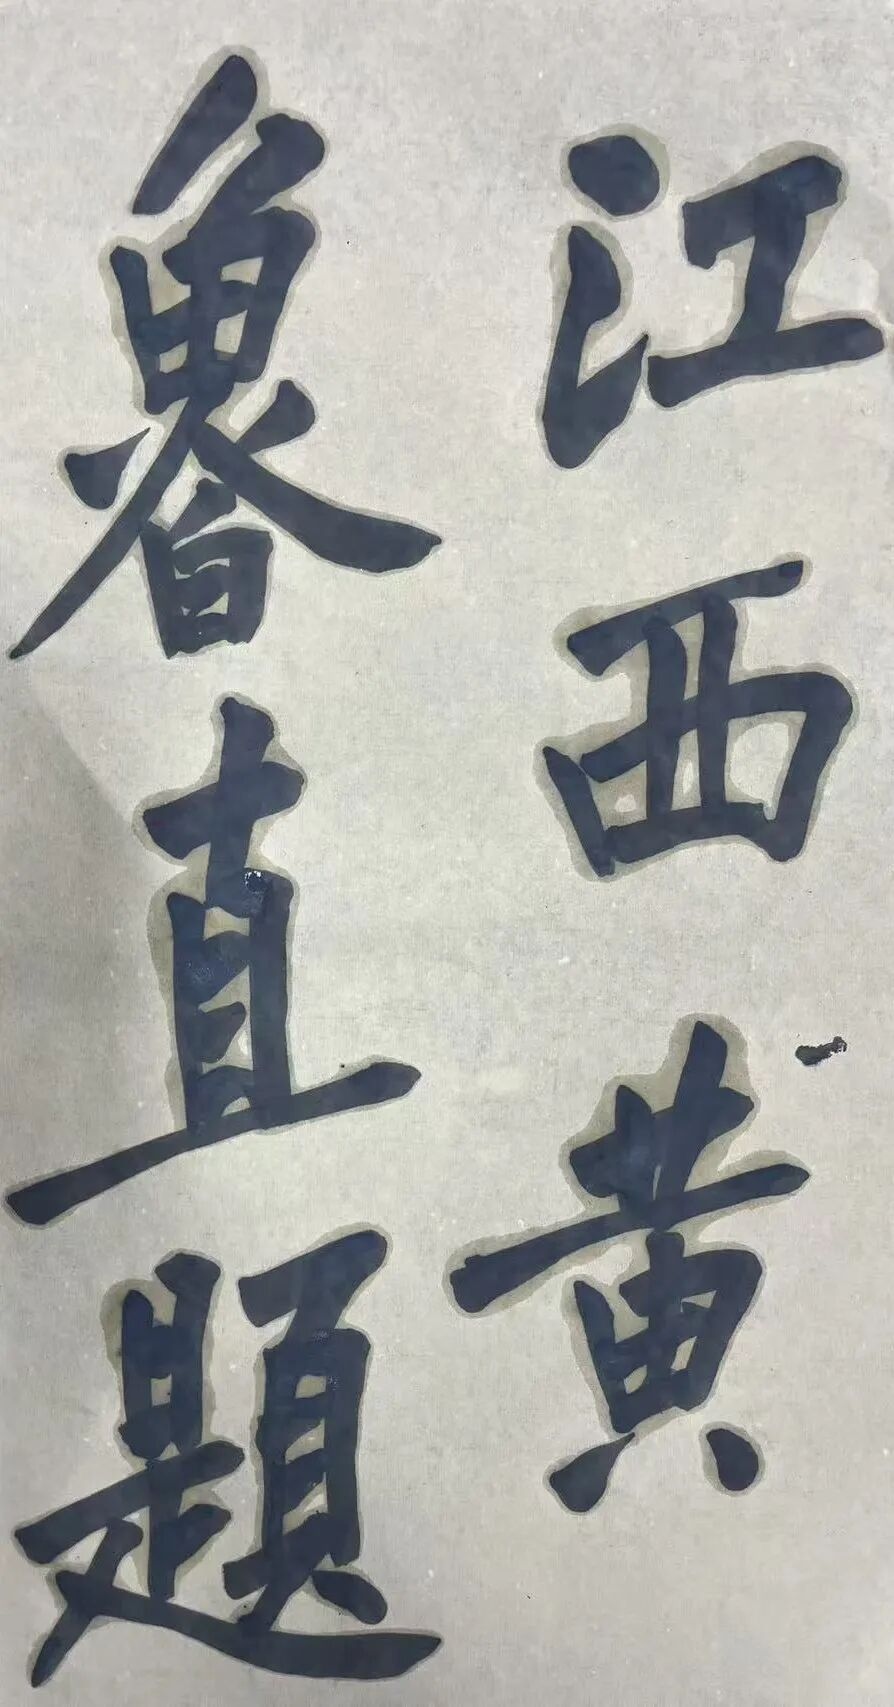 江西黄
魯直題